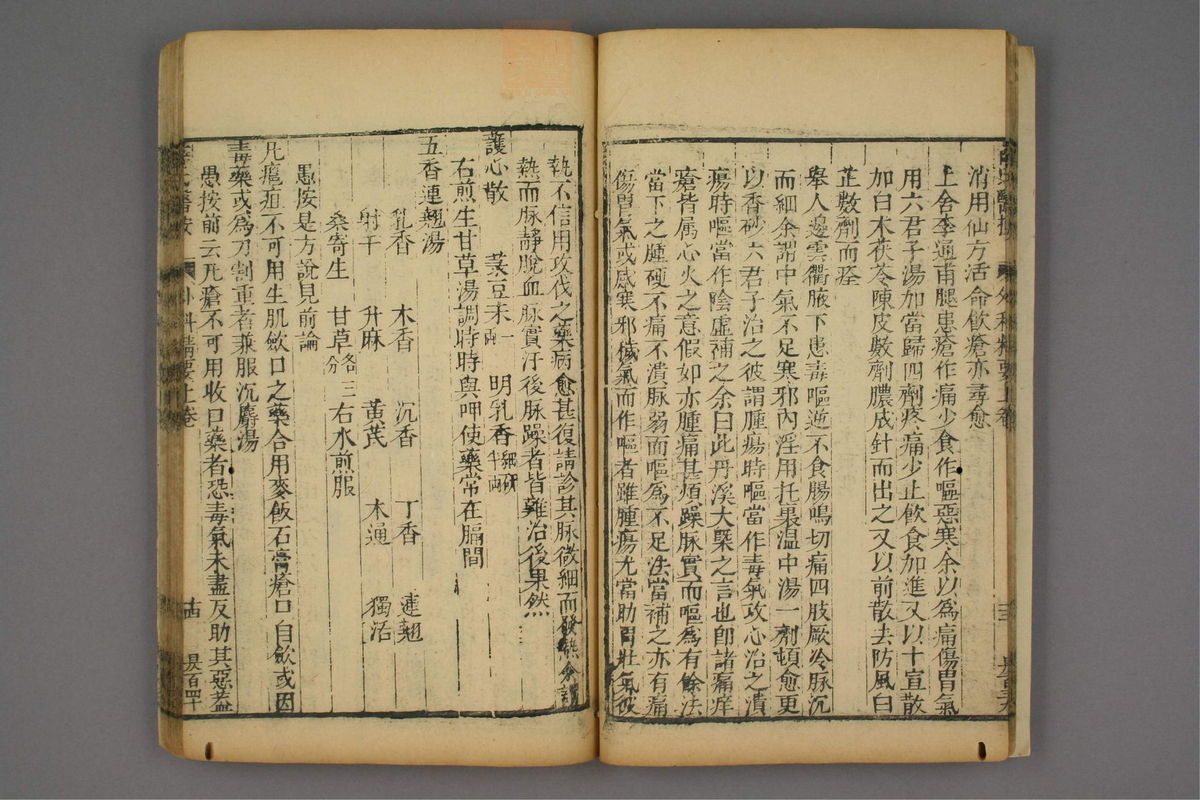 薛氏醫按 外科精要上卷 十三
消用仙方活命飲瘡亦尋愈
上舍李通甫腿患瘡作痛少食作嘔惡寒余以爲痛傷胃氣
用六君子湯加當歸四劑疼痛少止飲食加進又以十宣散
加白木茯苓陳皮數劑膿成針而出之又以前散去防風白
芷數劑而痊
舉人邊雲衢腋下患毒嘔逆不食腸鳴切痛四肢厥冷脉沉
而細余謂中氣不足寒邪內淫用托裏温中湯一劑頓愈更
以香砂六君子治之彼謂腫瘍時嘔當作毒氣攻心治之潰
瘍時嘔當作陰虛補之余曰此丹溪大槩之言也卽諸痛痒
瘡皆属心火之意假如赤腫痛甚煩躁脉實而嘔爲有餘法
當下之腫硬不痛不潰脉弱而嘔爲不足法當補之亦有痛
傷胃氣或感寒邪穢氣而作嘔者雖腫瘍尤當助胃壯氣彼
執不信用攻伐之藥病愈甚復請診其脉微細而發熱余謂
熱而脉靜脫血脉實汗後脉躁者皆難治後果然
護心散 菉豆末一兩 明乳香細研半兩
右煎生甘草湯調時時與呷使藥常在膈間
五香連翹湯
乳香 木香 沉香 丁香 連翹
射干 升麻 黃芪 木通 獨活
桑寄生 甘草各三分 右水煎服
愚按是方說見前論
凡癰疽不可用生肌斂口之藥合用麥飯石膏瘡口自斂或因
毒藥或爲刀割重者兼服沉麝湯
愚按前云凡瘡不可用收口藥者恐毒氣未盡反助其惡蓋
薛氏醫按 外科精要上卷 十四 吴百四十